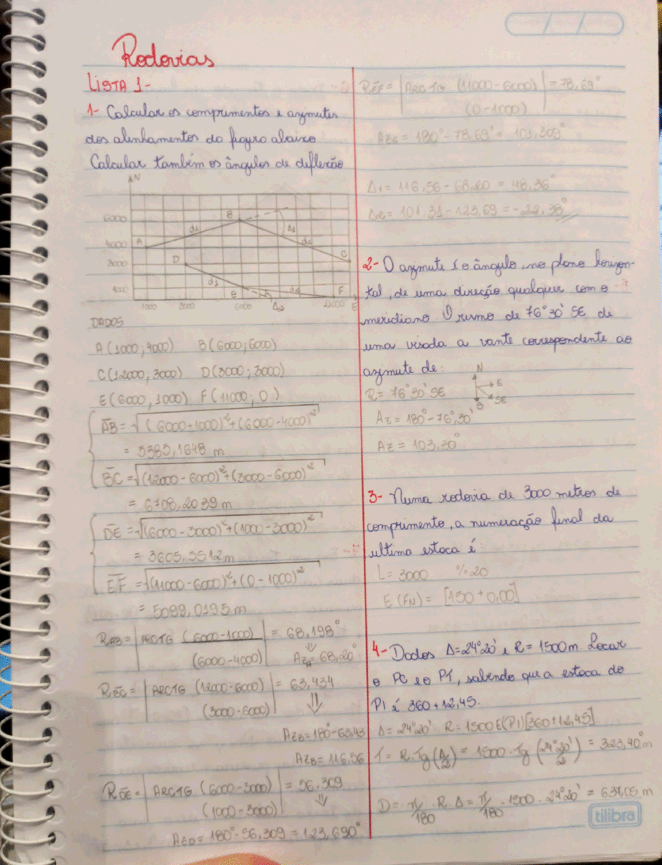 Rodovias
LISTA 1-
1- Calcular os comprimentos e azimutes
dos alinhamentos da figura abaixo
Calcular também os ângulos de deflexão
N
6000
4000
3000
1000
A
B
C
D
E
F
d1
d2
d3
Δ1
Δ2
1000
3000
6000
12000
E
DADOS
A (1000; 4000) B (6000; 6000)
C (12000, 3000) D (3000; 3000)
E (6000, 1000) F (11000, 0)
AB = √(6000-1000)²+(6000-4000)²
= 5385,1648 m
BC = √(12000-6000)²+(3000-6000)²
= 6708,2039 m
DE = √(6000-3000)²+(1000-3000)²
= 3605,5512 m
EF = √(11000-6000)²+(0-1000)²
= 5099,0195 m
RAB = |ARCTG (6000-1000)| = 68,198°
(6000-4000) Az = 68,20°
RBC = |ARCTG (12000-6000)| = 63,434
(3000-6000)
Az = 180°-63,43
Az = 116,56
RDE = |ARCTG (6000-3000)| = 56,309
(1000-3000)
Az = 180°-56,309 = 123,690°
REF = |ARCTG (11000-6000)| = 78,69°
(0-1000)
Az = 180°-78,69° = 101,309°
Δ1 = 116,56-68,20 = 48,36°
Δ2 = 101,31-123,69 = -22,38°
2- O azimute é o ângulo, no plano horizon-
tal, de uma direção qualquer com o
meridiano. O rumo de 76°30' SE de
uma visada a vante correspondente ao
azimute de:
R = 76°30' SE
N
E
S
SE
Az = 180°-76°,30'
Az = 103,30°
3- Numa rodovia de 3000 metros de
comprimento, a numeração final da
ultima estaca é
L = 3000 % 20
E (FN) = [150 + 0,00]
4- Dados Δ=24°20' e R = 1500 m Locar
o PC e o PT, sabendo que a estaca do
PI é 360+12,45.
Δ = 24°20' R = 1500 E(PI)[360+12,45]
T = R.Tg(Δ/2) = 1500.Tg(24°20'/2) = 323,40 m
D = π/180 . R . Δ = π/180 . 1500 . 24°20' = 637,05 m
tilibra